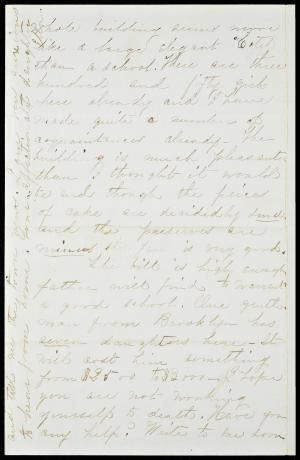 whole building seems more
like a large elegant Hotel
than a school. There are three
hundred and fifty girls
here already and I have
made quite a number of
acquaintances already. The
building is much pleasanter
than I thought it would
be and though the pieces
of cake are decidedly small
and the preserves are
minus the fare is very good.
The bill is high enough
father will find to warrant
a good school. One gentle
man from Brooklyn has
seven daughters here - It
will cost him something
from $2500 to $3000 - I hope
you are not working
yourself to death. Have you
any help? Write to me soon
and tell me every thing from home. I am very anxious
to hear from home. Your affectionate daughter